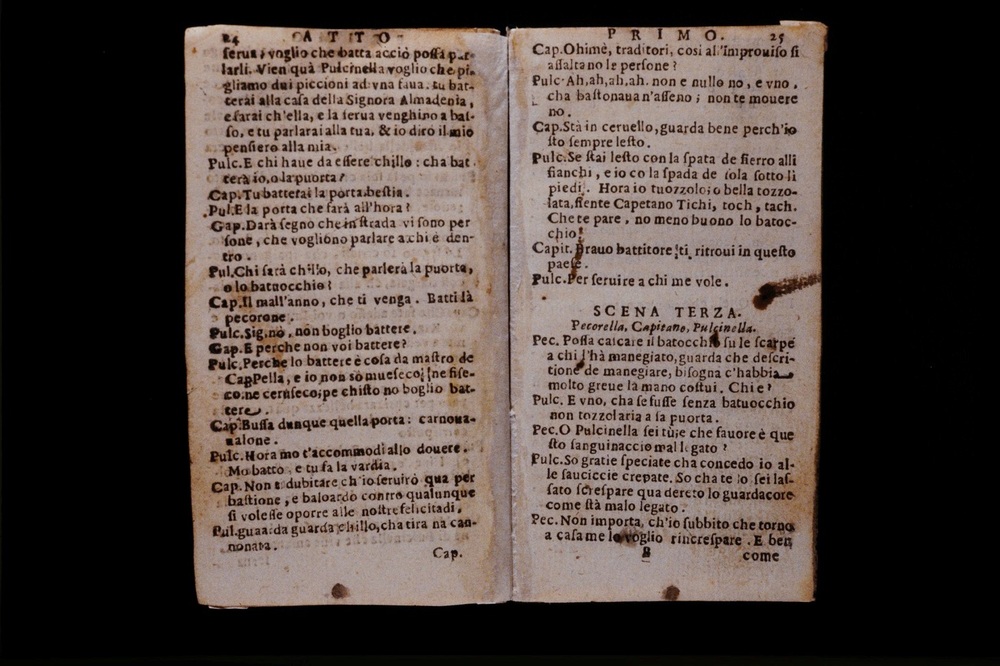 24 ATTO
serua, voglio che batta acciò possa par-
larli. Vien quà Pulcinella voglio che pi-
gliamo dui piccioni ad vna faua. tu bat-
terai alla casa della Signora Almadenia,
e farai ch'ella, e la serua venghino a bas-
so, e tu parlarai alla tua, & io dirò il mio
pensiero alla mia.
Pulc. E chi haue da essere chillo : cha bat
terà io, o la puorta?
Cap. Tu batterai la porta bestia.
Pul. E la porta che farà all'hora?
Cap. Darà segno che in strada vi sono per
sone, che vogliono parlare a chi è den-
tro.
Pul. Chi sarà chillo, che parlerà la puorta,
o lo batuocchio?
Cap. Il mall'anno, che ti venga. Batti là
pecorone.
Pulc. Sig. nò, non boglio battere.
Cap. E perche non voi battere?
Pulc. Perche lo battere è cosa da mastro de
Cappella, e io non sò mueseco, ne fise-
co, ne ceruseco, pe chisto no boglio bat-
tere.
Cap. Bussa dunque quella porta: carnoua-
ualone.
Pulc. Hora mo t'accommodi allo douere.
Mo batto, e tu fa la vardia.
Cap. Non t dubitare ch'io seruirò quà per
bastione, e baloardo contro qualunque
si volesse oporre alle nostre felicitadi.
Pul. guarda guarda chillo, cha tira na can-
nonata.
Cap.
PRIMO. 25
Cap. Ohimè, traditori, così all'improuiso si
assaltano le persone?
Pulc. Ah, ah, ah, ah. non e nullo no, e vno,
cha bastonaua n'asseno; non te mouere
no.
Cap. Stà in ceruello, guarda bene perch'io
sto sempre lesto.
Pulc. Se stai lesto con la spata de fierro alli
fianchi, e io co la spada de sola sotto li
piedi. Hora io tuozzolo; o bella tozzo-
lata, siente Capetano Tichi, toch, tach.
Che te pare, no meno buono lo batoc-
chio?
Capit. Brauo battitore ti ritroui in questo
paese.
Pulc. Per seruire a chi me vole.
SCENA TERZA.
Pecorella, Capitano, Pulcinella.
Pec. Possa calcare il batocchio su le scarpe
a chi l'hà manegiato, guarda che descri-
tione de manegiare, bisogna c'habbia
molto greue la mano costui. Chi e?
Pulc. E vno, cha se fusse senza batuocchio
non tozzolaria a sa puorta.
Pec. O Pulcinella sei tù; e che fauore è que
sto sanguinaccio mal legato?
Pulc. So gratie speciate cha concedo io al-
le sauciccie crepate. So cha te lo sei las-
sato screspare qua dereto lo guardacore
come stà malo legato.
Pec. Non importa, ch'io subbito che torno
a casa me lo voglio rincrespare. E ben
B come